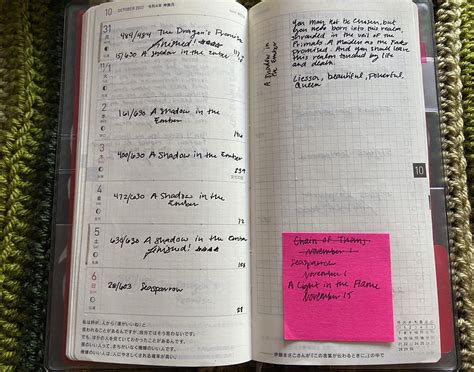 10 OCTOBER 2022 令和4年 神無月
31
月
484/484 The Dragon's Promise
finished!
15/630 A Shadow in the Ember
1
火
2
水
161/630 A Shadow in the
Ember
146
3
木
400/630 A Shadow in the Ember
239
文化の日
4
金
472/630 A Shadow in the
Ember
72
5
土
630/630 A Shadow in the Ember
finished!
158
6
日
28/603 Seasparrow
28
A Shadow in
the Ember
You may not be Chosen, but
you were born into this realm,
shrouded in the veil of the
Primals. A Maiden as the Fates
Promised. And you shall leave
this realm touched by life
and death.
Liessa, beautiful, powerful,
Queen
10
Chain of Thorns
November 1
Seasparrow
November 1
A Light in the Flame
November 15